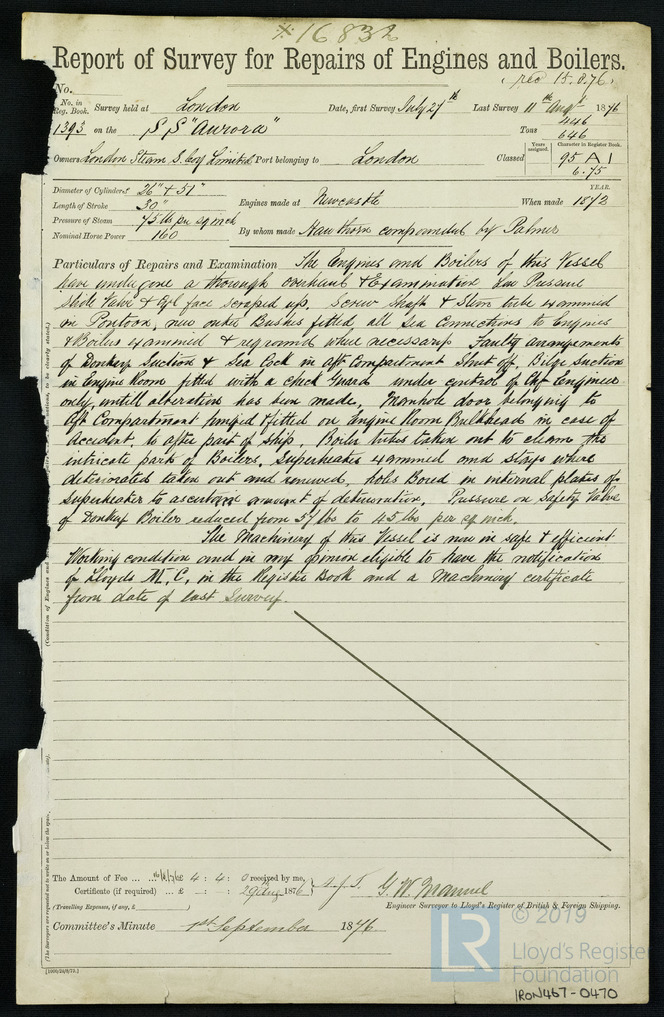 * 16832
Report of Survey for Repairs of Engines and Boilers.
(rec 15.8.76)
No.
No. in Reg. Book. Survey held at London Date, first Survey July 27th Last Survey 11th Augt 1876
1393 on the SS "Aurora" Tons 446 646
Owners London Steam S. Coy Limited Port belonging to London Classed Years assigned. Character in Register Book. 95 A 1 6.75
Diameter of Cylinders 26" + 51"
Length of Stroke 30" Engines made at Newcastle YEAR. When made 1872
Pressure of Steam 75 lbs per sq inch
Nominal Horse Power 160 By whom made Hawthorn compounded by Palmer
Particulars of Repairs and Examination The Engines and Boilers of this Vessel
have undergone a thorough overhaul & Examination Low Pressure
Slide Valve & Cyl face scraped up. Screw Shaft & Stern tube examined
on Pontoon, new outer Bushes fitted all Sea Connections to Engines
& Boilers examined & reground where necessary Faulty arrangements
of Donkey Suction & Sea Cock in aft Compartment Shut off, Bilge Suction
in Engine Room fitted with a check Guard under control of Chf Engineer
only, untill alteration has been made, Manhole door belonging to
Aft Compartment hinged & fitted on Engine Room Bulkhead in case of
Accident, to after part of Ship. Boiler tubes taken out to clean the
intricate parts of Boilers. Superheater examined and Stays where
deteriorated taken out and renewed, holes Bored in internal plates of
Superheater to ascertain amount of deterioration. Pressure on Safety Valve
of Donkey Boiler reduced from 57 lbs to 45 lbs per sq inch.
The Machinery of this Vessel is now in safe & efficient
Working condition and in my opinion eligible to have the notification
of Lloyds M.C. in the Register Book and a Machinery certificate
from date of last Survey.
The Amount of Fee ... ... £ 4 : 4 : 0 received by me,
Certificate (if required) ... £ - : - : 29 Aug 1876
(Travelling Expenses, if any, £ ) G. W. Manuel
Engineer Surveyor to Lloyd's Register of British & Foreign Shipping.
Committee's Minute 1st September 1876
[1000/24/9/75.]
© 2019
LR
Lloyd's Register
Foundation
IRON467-0470